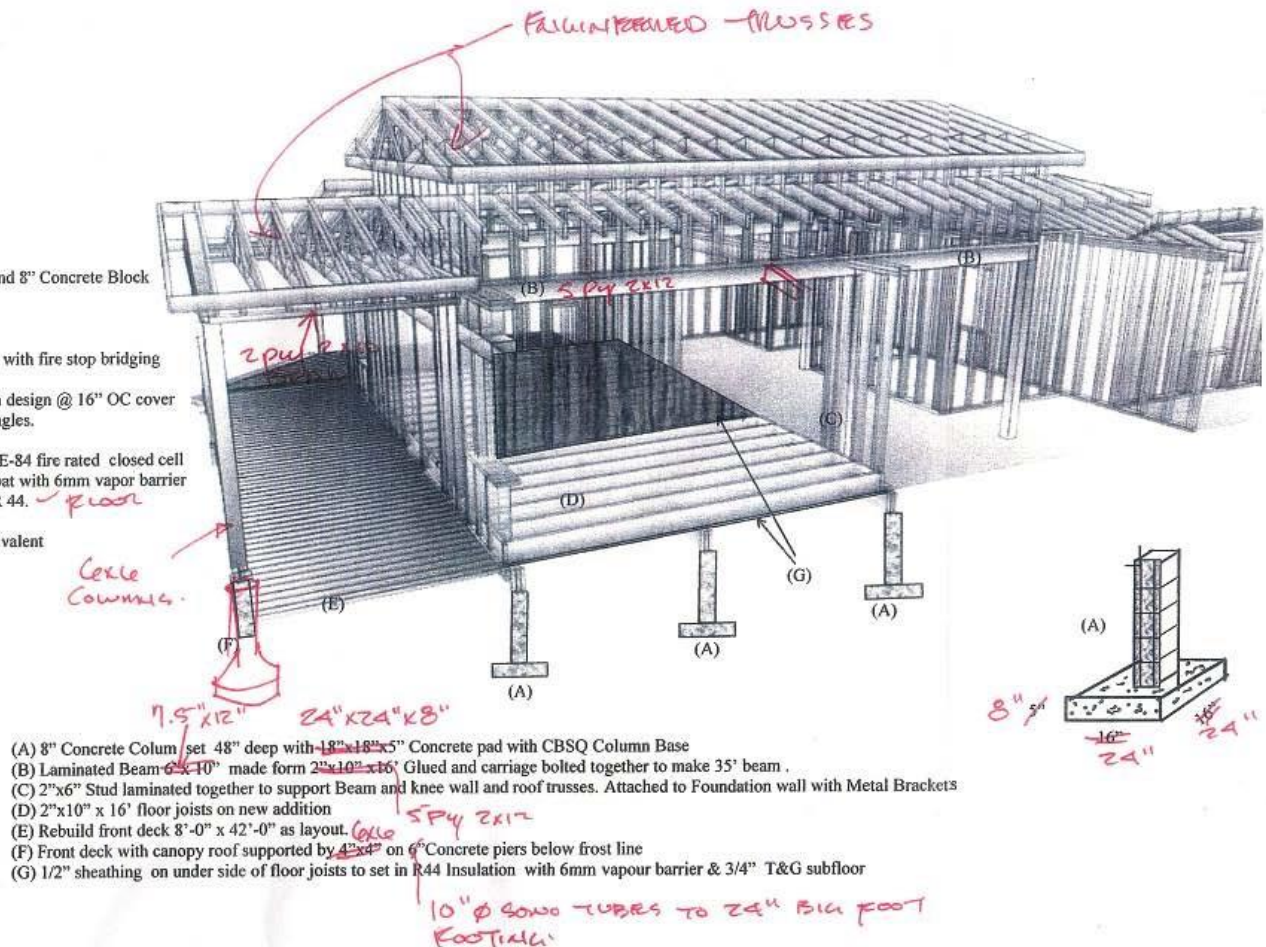 ENGINEERED TRUSSES
nd 8" Concrete Block
with fire stop bridging
design @ 16" OC cover
gles.
E-84 fire rated closed cell
oat with 6mm vapor barrier
44. FLOOR
valent
(B) 5 Ply 2x12
(B)
2 Ply
(C)
(D)
6x6
COLUMNS.
(E)
(G)
(F)
(A)
(A)
(A)
(A)
8" 5"
16" 16"
24" 24"
7.5"x12" 24"x24"x8"
(A) 8" Concrete Colum set 48" deep with 18"x18"x5" Concrete pad with CBSQ Column Base
(B) Laminated Beam 6"x 10" made form 2"x10" x16' Glued and carriage bolted together to make 35' beam .
(C) 2"x6" Stud laminated together to support Beam and knee wall and roof trusses. Attached to Foundation wall with Metal Brackets
(D) 2"x10" x 16' floor joists on new addition
5 Ply 2x12
(E) Rebuild front deck 8'-0" x 42'-0" as layout. 6x6
(F) Front deck with canopy roof supported by 4"x4" on 6"Concrete piers below frost line
(G) 1/2" sheathing on under side of floor joists to set in R44 Insulation with 6mm vapour barrier & 3/4" T&G subfloor
10" Ø SONO TUBES TO 24" BIG FOOT
FOOTING.